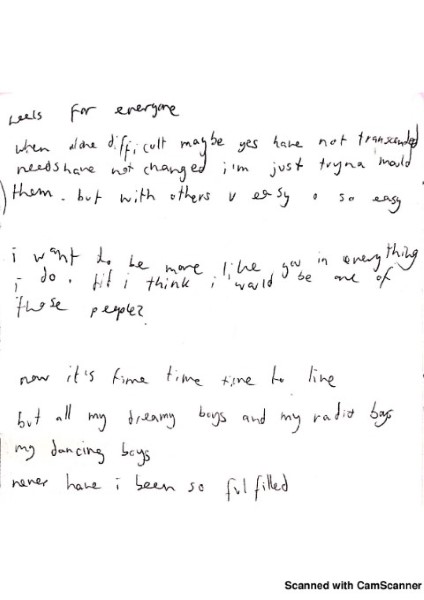 for everyone
when alone difficult maybe yes have not transcended
needs have not changed i'm just tryna mould
them. but with others v easy so easy
i want to be more like you in everything
i do. did i think i would be one of
those people?
now it's time time time to live
but all my dreamy boys and my radio boys
my dancing boys
never have i been so fulfilled
Scanned with CamScanner